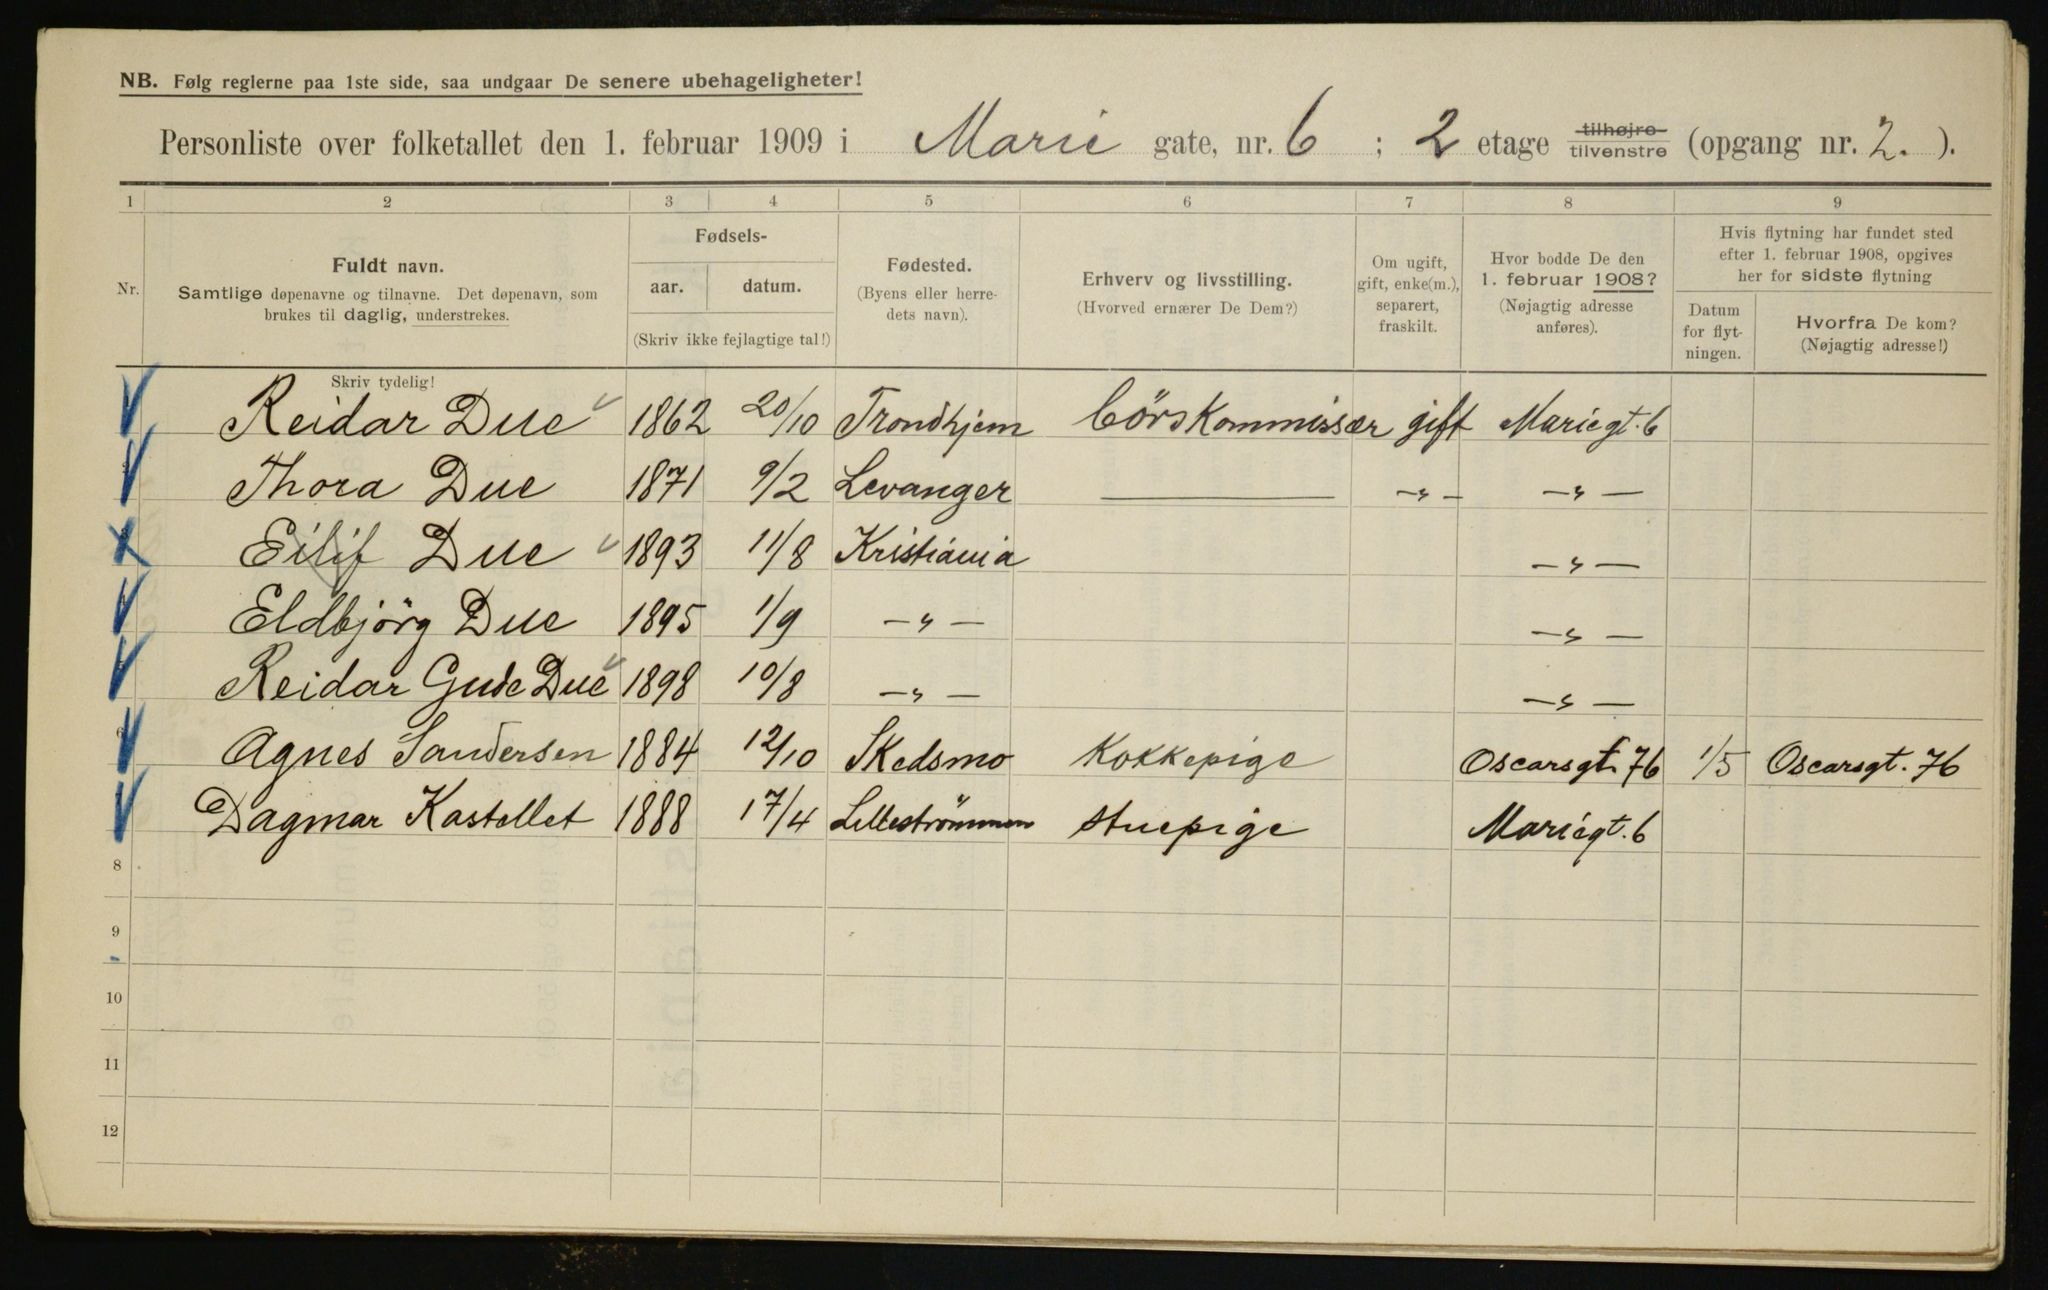 NB. Følg reglerne paa 1ste side, saa undgaar De senere ubehageligheter!
Personliste over folketallet den 1. februar 1909 i Marie gate, nr. 6 ; 2 etage tilhøjre tilvenstre (opgang nr. 2. ).
1 2 3 4 5 6 7 8 9
Nr.
Fuldt navn.
Samtlige døpenavne og tilnavne. Det døpenavn, som
brukes til daglig, understrekes.
Fødsels-
aar. datum.
(Skriv ikke fejlagtige tal!)
Fødested.
(Byens eller herre-
dets navn).
Erhverv og livsstilling.
(Hvorved ernærer De Dem?)
Om ugift,
gift, enke(m.),
separert,
fraskilt.
Hvor bodde De den
1. februar 1908?
(Nøjagtig adresse
anføres).
Hvis flytning har fundet sted
efter 1. februar 1908, opgives
her for sidste flytning
Datum
for flyt-
ningen.
Hvorfra De kom?
(Nøjagtig adresse!)
Skriv tydelig!
Reidar Due 1862 20/10 Trondhjem Börskommissær gift Mariegt. 6
Thora Due 1871 9/2 Levanger — -„- -„-
Eilif Due 1893 11/8 Kristiania -„-
Eldbjörg Due 1895 1/9 -„- -„-
Reidar Gude Due 1898 10/8 -„- -„-
6 Agnes Sandersen 1884 12/10 Skedsmo Kokkepige Oscarsgt. 76 1/5 Oscarsgt. 76
Dagmar Kastellet 1888 17/4 Lillestrømmen stuepige Mariegt. 6
8
9
10
11
12